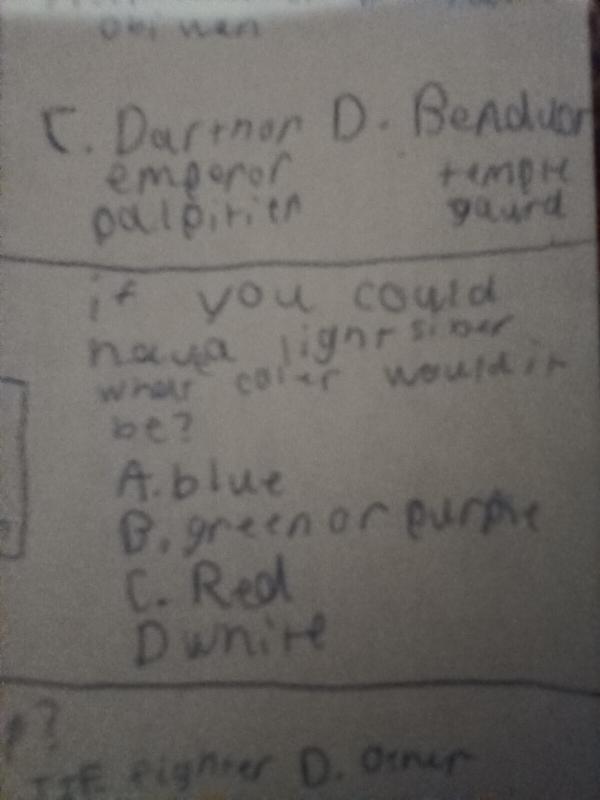 obi wan
C. Dartnor D. Benduor
emperor temple
palpitien gaurd
if you could
have a light siber
what coler would it
be?
A. blue
B. green or purple
C. Red
D white
?
TIE fighter D. Other